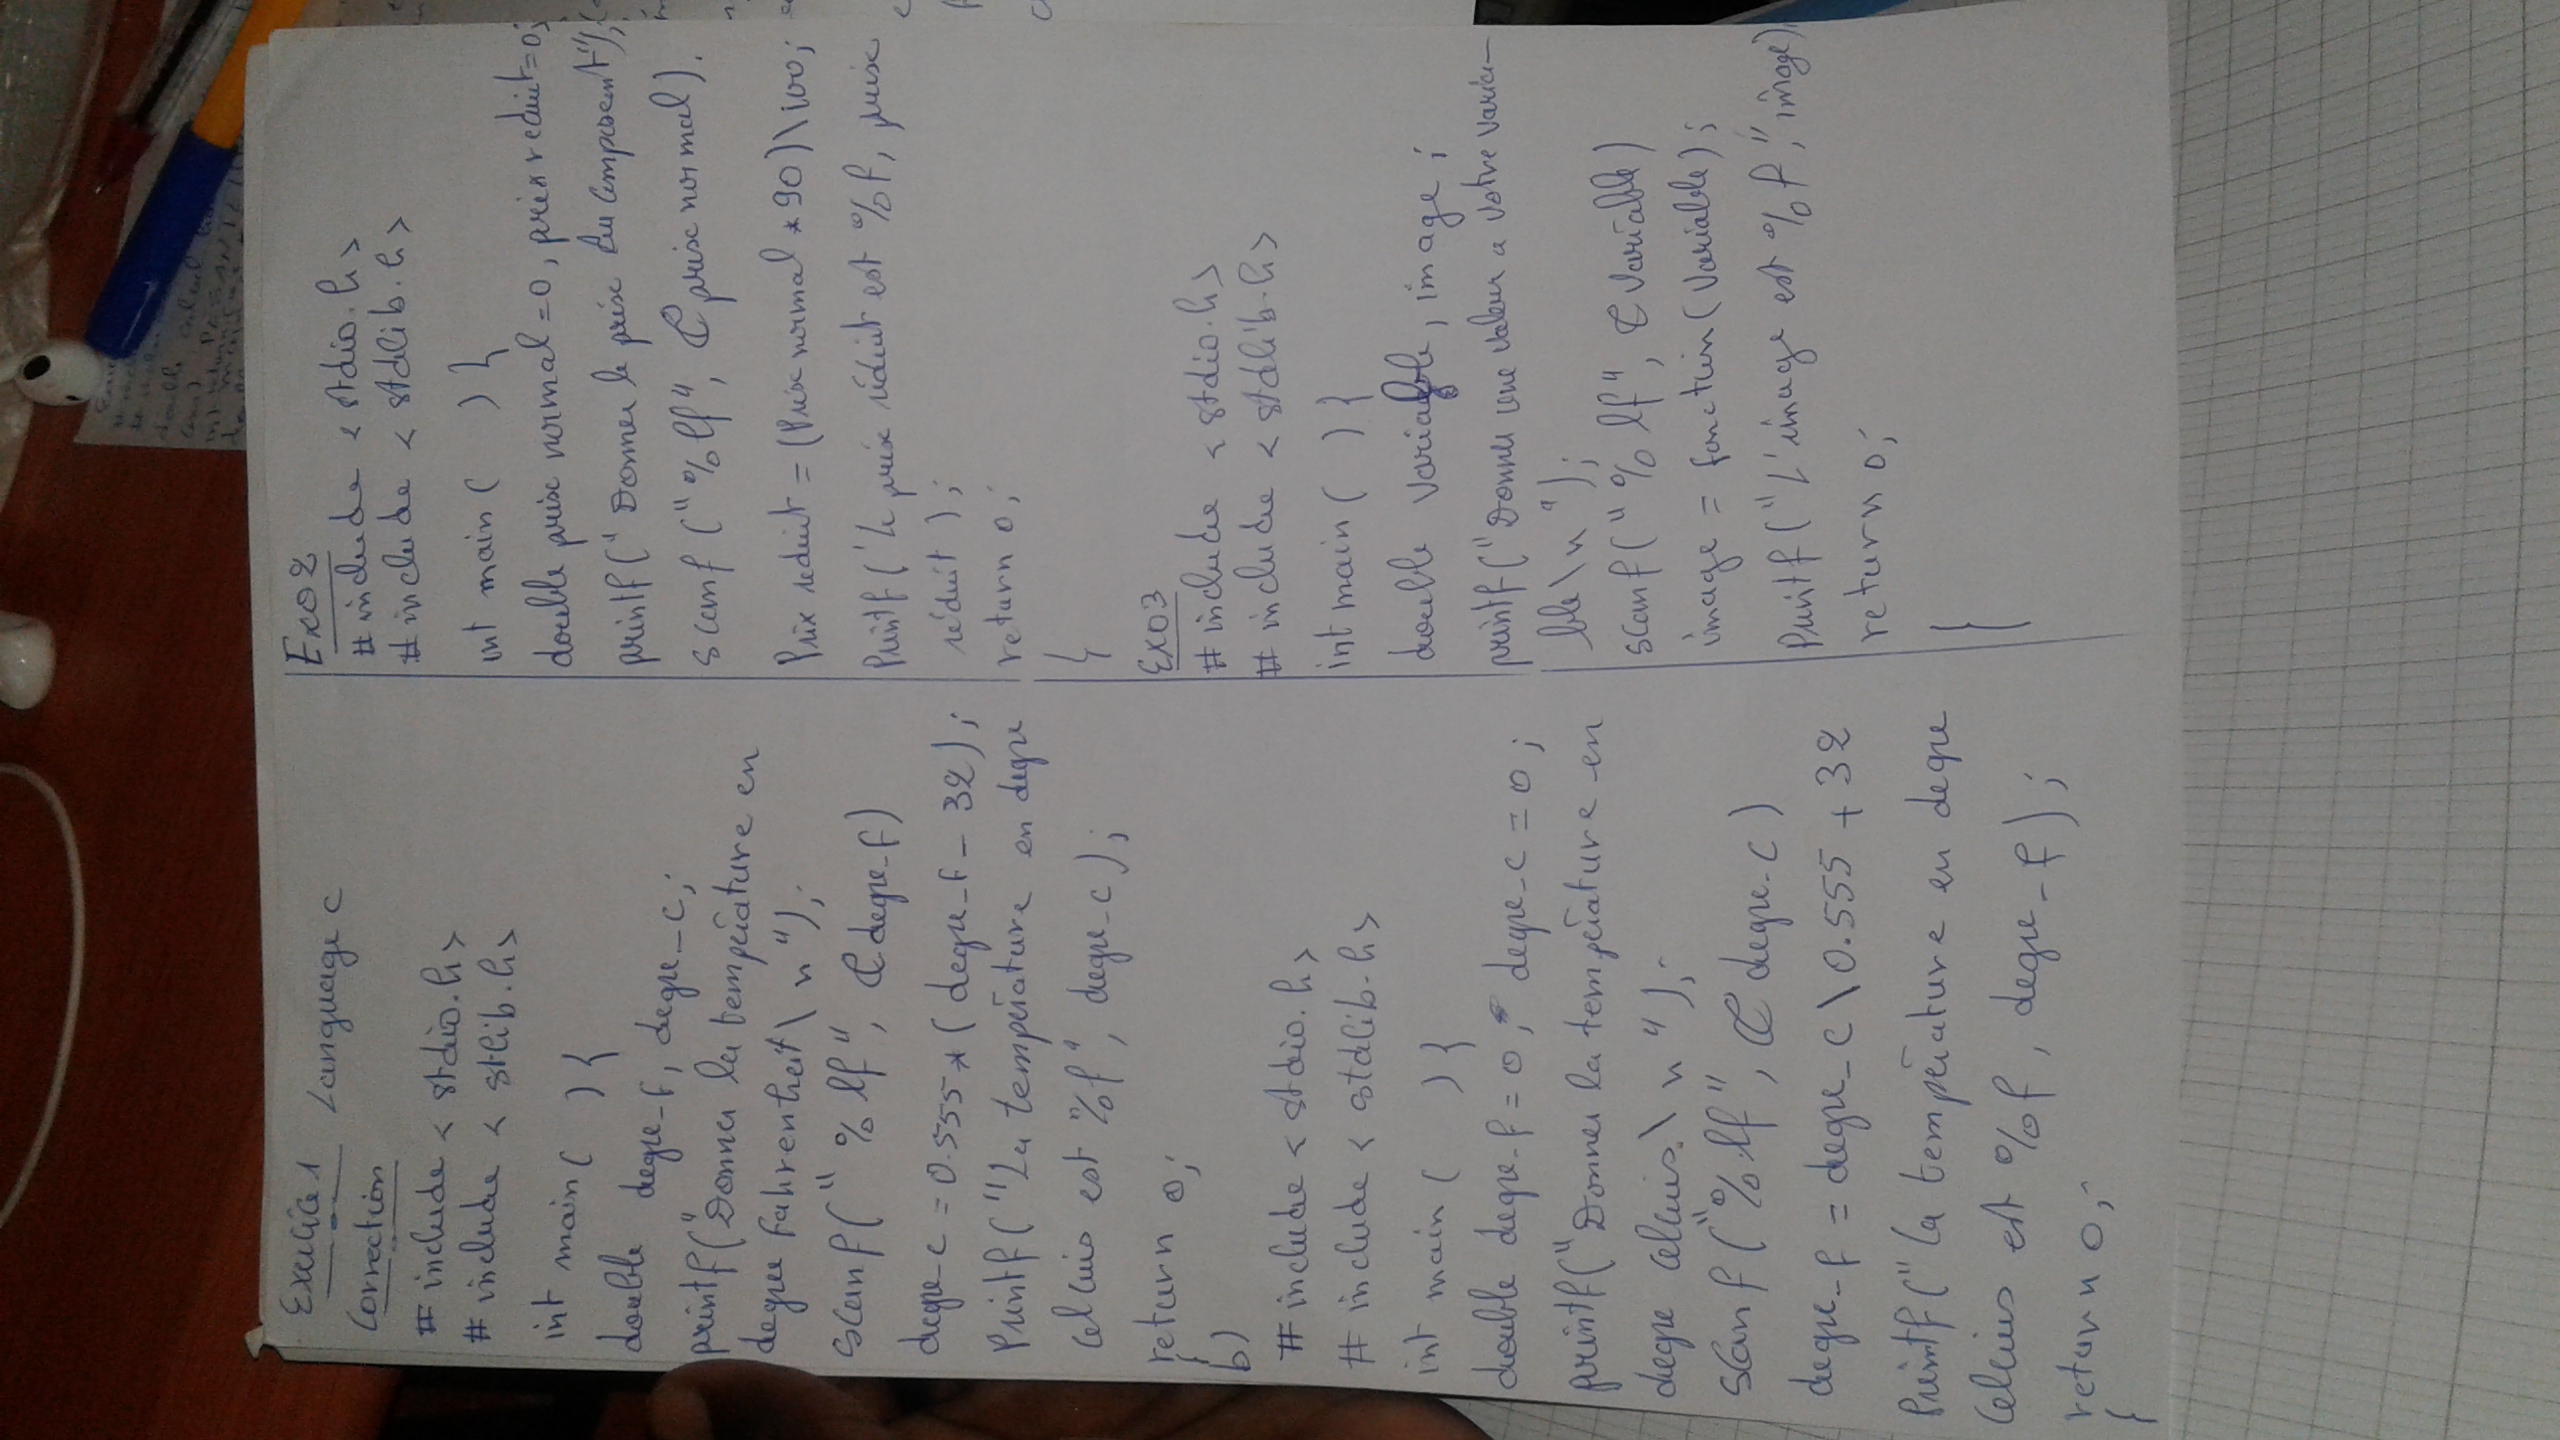 Exercice 1 Language c
Correction
# include < stdio.h>
# include < stlib.h>
int main( ) {
double degre_f, degre_c;
printf("Donner la température en
degree fahrenheit \ n ");
scanf(" % lf", & degre_f)
degre_c = 0.555 * ( degre_f - 32);
Printf("La température en degre
celcius est %f", degre_c);
return 0;
}
b)
# include < stdio.h>
# include < stdlib.h>
int main ( ) {
double degre_f = 0, degre_c = 0;
printf("Donner la température en
degre celcius. \ n ");
scanf ("% lf", & degre_c)
degre_f = degre_c \ 0.555 + 32
Printf(" La température en degre
Celcius est %f, degre_f);
return 0;
}
Exo2
# include < stdio.h>
# include < stdlib.h>
int main ( ) {
double prix normal = 0, prix reduit = 0;
printf(" Donner le prix du composent");
scanf ("%lf", & prix normal).
Prix reduit = (Prix normal * 90) \ 100;
Printf ( 'Le prix réduit est %f, prix
réduit );
return 0;
}
Exo3
# include < stdio.h>
# include < stdlib.h>
int main ( ) {
double variable, image ;
printf("Donner une valeur a votre varia-
ble \ n ");
scanf(" % lf", & variable)
image = fonction(variable);
Printf ("L'image est %f," image),
return 0;
}